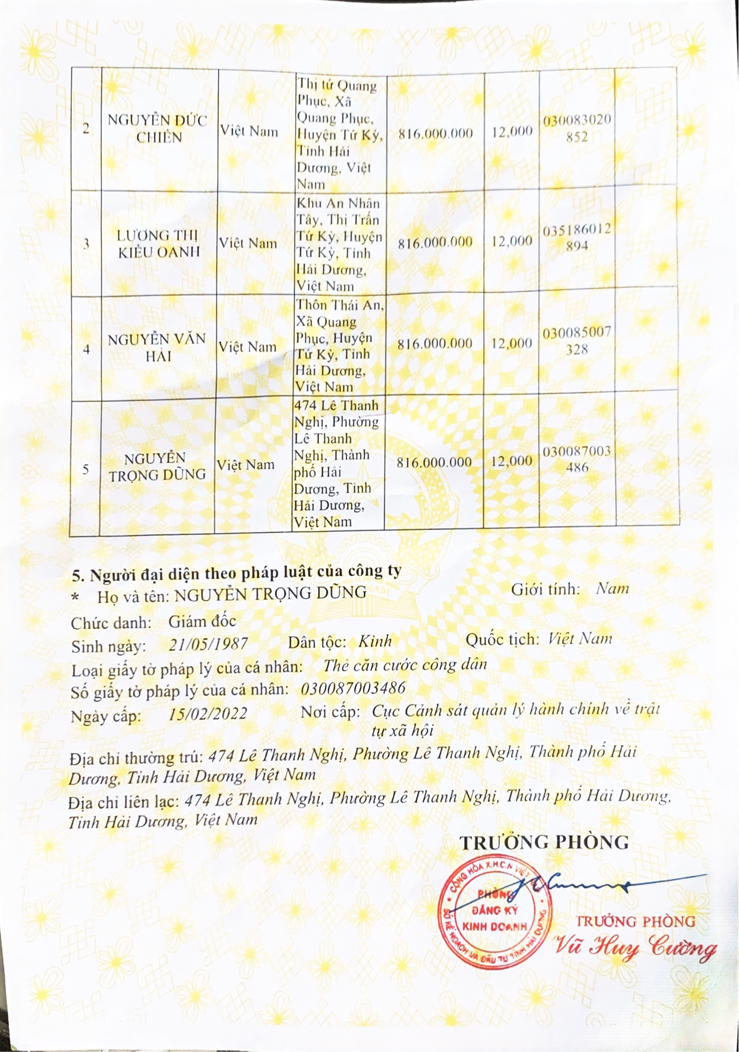 2
NGUYỄN ĐỨC
CHIẾN
Việt Nam
Thị tứ Quang
Phục, Xã
Quang Phục,
Huyện Tứ Kỳ,
Tỉnh Hải
Dương, Việt
Nam
816.000.000
12,000
030083020
852
3
LƯƠNG THỊ
KIỀU OANH
Việt Nam
Khu An Nhân
Tây, Thị Trấn
Tứ Kỳ, Huyện
Tứ Kỳ, Tỉnh
Hải Dương,
Việt Nam
816.000.000
12,000
035186012
894
4
NGUYỄN VĂN
HẢI
Việt Nam
Thôn Thái An,
Xã Quang
Phục, Huyện
Tứ Kỳ, Tỉnh
Hải Dương,
Việt Nam
816.000.000
12,000
030085007
328
5
NGUYỄN
TRỌNG DŨNG
Việt Nam
474 Lê Thanh
Nghị, Phường
Lê Thanh
Nghị, Thành
phố Hải
Dương, Tỉnh
Hải Dương,
Việt Nam
816.000.000
12,000
030087003
486
5. Người đại diện theo pháp luật của công ty
* Họ và tên: NGUYỄN TRỌNG DŨNG Giới tính: Nam
Chức danh: Giám đốc
Sinh ngày: 21/05/1987 Dân tộc: Kinh Quốc tịch: Việt Nam
Loại giấy tờ pháp lý của cá nhân: Thẻ căn cước công dân
Số giấy tờ pháp lý của cá nhân: 030087003486
Ngày cấp: 15/02/2022 Nơi cấp: Cục Cảnh sát quản lý hành chính về trật
tự xã hội
Địa chỉ thường trú: 474 Lê Thanh Nghị, Phường Lê Thanh Nghị, Thành phố Hải
Dương, Tỉnh Hải Dương, Việt Nam
Địa chỉ liên lạc: 474 Lê Thanh Nghị, Phường Lê Thanh Nghị, Thành phố Hải Dương,
Tỉnh Hải Dương, Việt Nam
TRƯỞNG PHÒNG
CỘNG HÒA X.H.C.N VIỆT
PHÒNG
ĐĂNG KÝ
KINH DOANH
SỞ KẾ HOẠCH VÀ ĐẦU TƯ TỈNH HẢI DƯƠNG
TRƯỞNG PHÒNG
Vũ Huy Cường